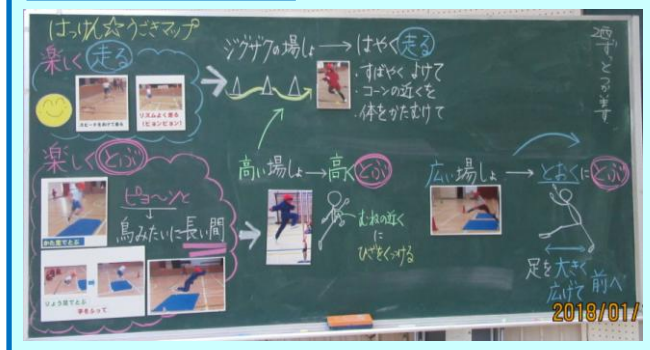 はっけん☆うごきマップ
楽しく走る
スピードをあげて走る
リズムよく走る
(ピョンピョン)
ジグザグの場しょ→はやく走る
・すばやくよけて
・コーンの近くを
・体をかたむけて
楽しくとぶ
ピョ〜ンと
鳥みたいに長い間
かた足でとぶ
りょう足でとぶ
手をふって
高い場しょ→高くとぶ
むねの近く
に
ひざをくっつける
広い場しょ→とおくにとぶ
足を大きく
広げて前へ
2018/01/